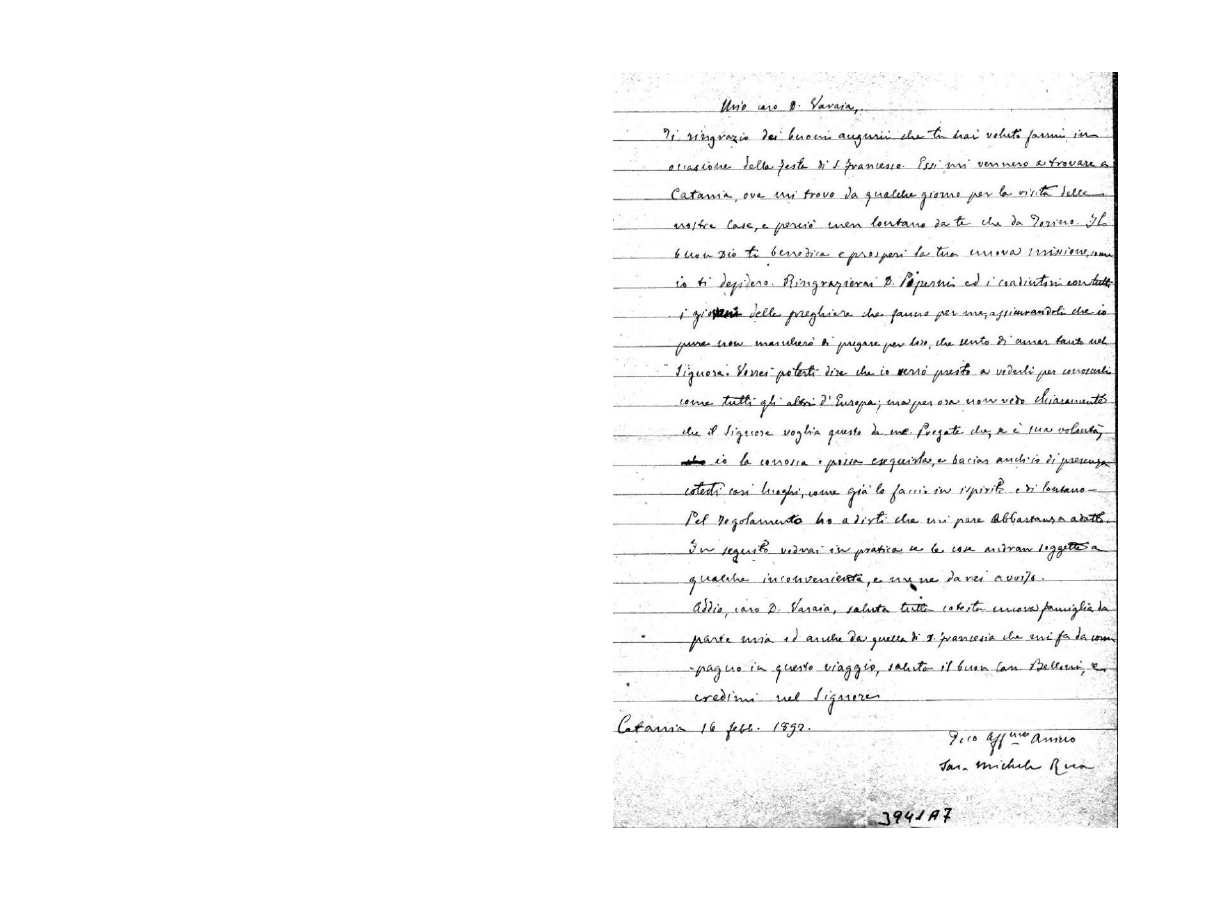 Mio caro D. Varaia,
Ti ringrazio dei buoni augurii che tu hai voluto farmi in
occasione della festa di S. Francesco. Essi mi vennero a trovare a
Catania, ove mi trovo da qualche giorno per la visita delle
nostre Case, e perciò men lontano da te che da Torino. Il
buon Dio ti benedica e prosperi la tua nuova missione, come
io ti desidero. Ringrazierai D. ed i coadiutori con tutti
i delle preghiere che fanno per me, assicurandoli che io
pure non mancherò di pregare per loro, che sento di amar tanto nel
Signore. Vorrei poterti dire che io verrò presto a vederli per conoscerli
come tutti gli altri d'Europa; ma per ora non vedo chiaramente
che il Signore voglia questo da me. Pregate che, se è sua volontà,
io la conosca e possa eseguirla, e baciar anch'io di presenza
cotesti cari luoghi, come già lo faccio in ispirito e di lontano –
Pel regolamento ho a dirti che mi pare abbastanza adatto.
In seguito vedrai in pratica se le cose andran soggette a
qualche inconveniente, e me ne darai avviso.
Addio, caro D. Varaia, saluta tutta cotesta nuova famiglia da
parte mia ed anche da quella di D. Francesia che mi fa da com
-pagno in questo viaggio, saluta il buon Can Belloni, e
credimi nel Signore
Catania 16 febb. 1892.
Tuo Aff.mo Amico
Sac. Michele Rua
3941A7